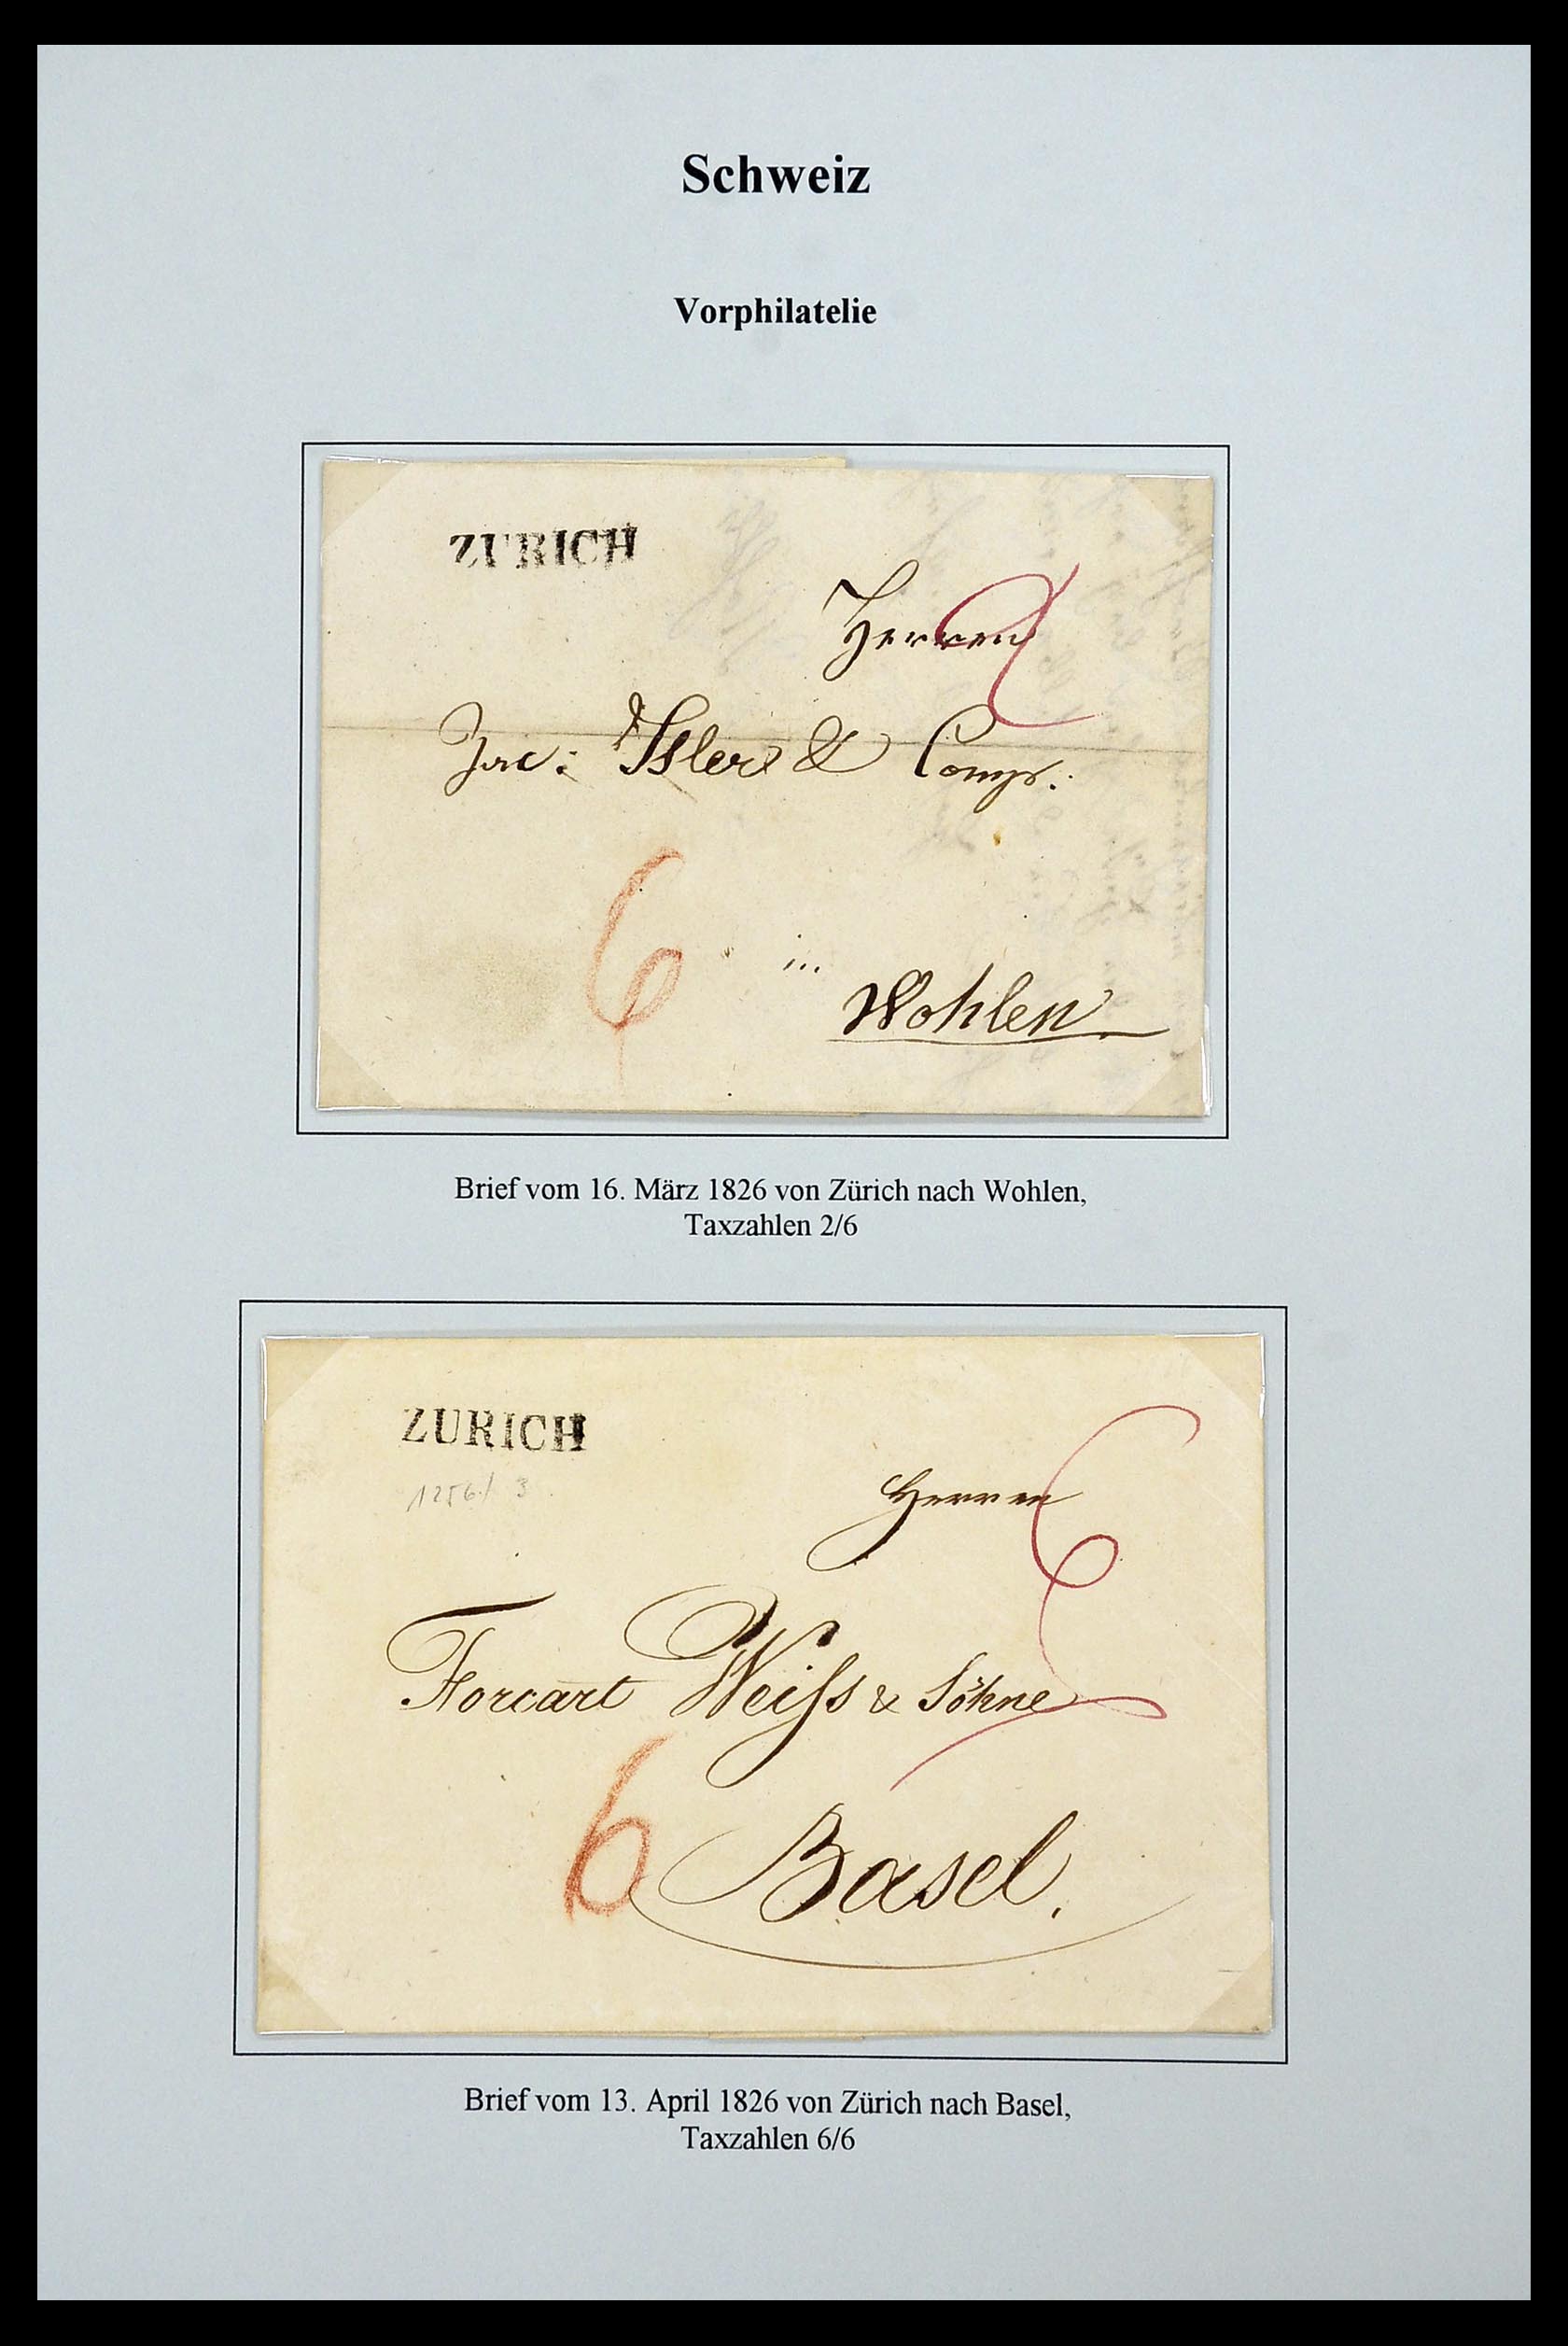 Schweiz
Vorphilatelie
ZURICH
Herren
2
Jac: Isler & Comp.
6
in
Wohlen
Brief vom 16. März 1826 von Zürich nach Wohlen,
Taxzahlen 2/6
ZURICH
1256/ 3
Herren
6
Forcart Weiſs & Söhne
6
Basel.
Brief vom 13. April 1826 von Zürich nach Basel,
Taxzahlen 6/6